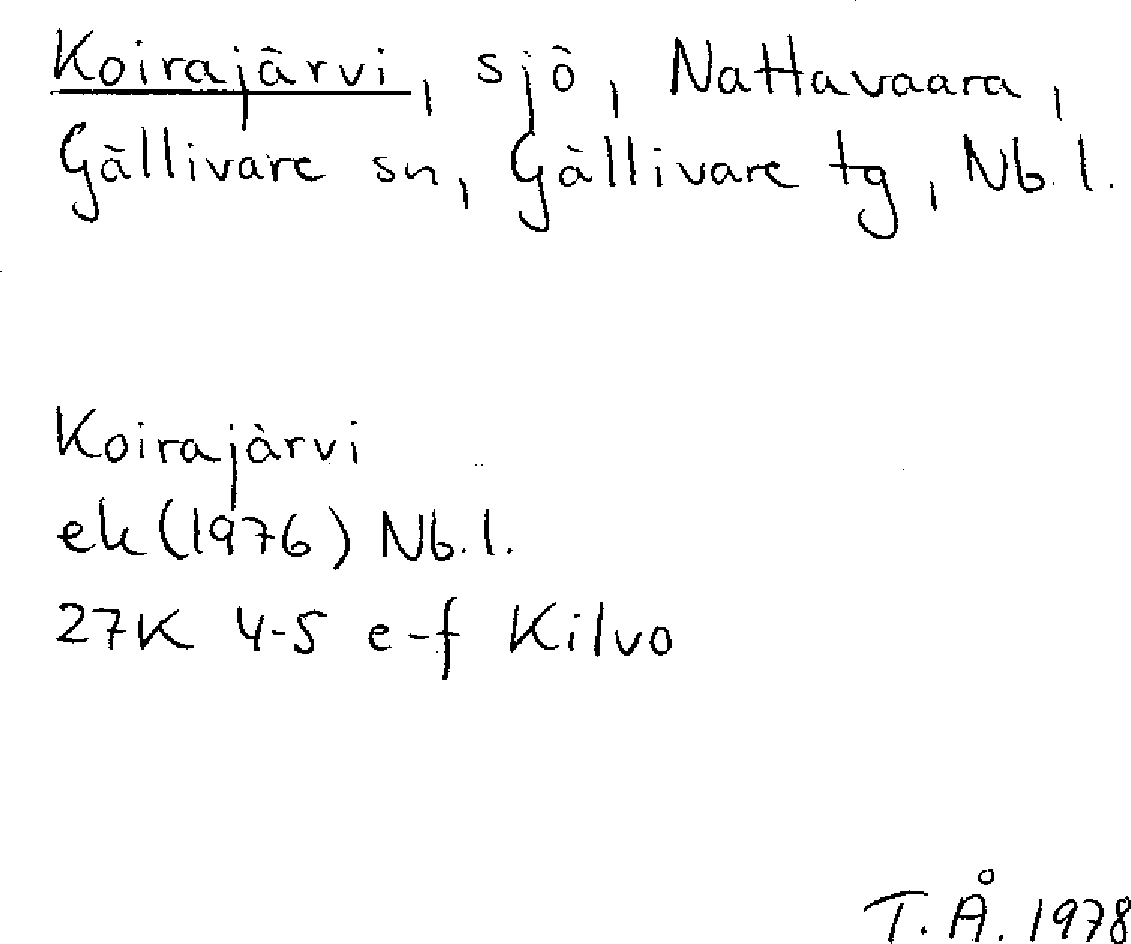 Koirajärvi, sjö, Nattavaara,
Gällivare sn, Gällivare tg, Nb.l.
Koirajärvi
ek (1976) Nb.l.
27K 4-5 e-f Kilvo
T.Å. 1978